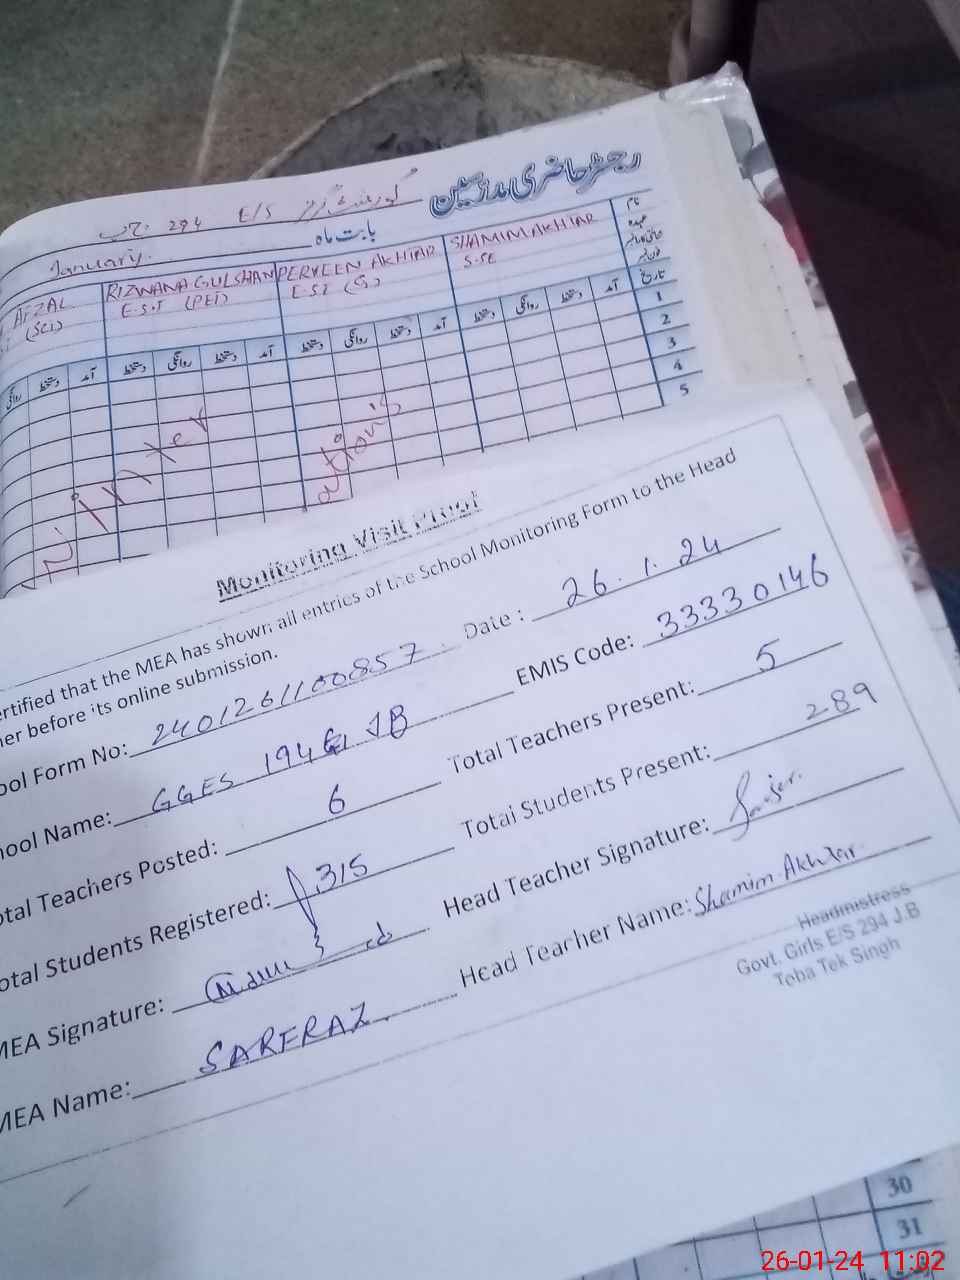 رجسٹر حاضری مدرسین
گورنمنٹ گرلز E/S 294 ج ب
بابت ماہ January
نام
عہدہ
SHAMIM AKHTAR
S.SE
PERVEEN AKHTAR
E.S.T (S)
RIZWANA GULSHAN
E.S.T (PET)
AFZAL
(Sci)
تاریخ آمد دستخط روانگی دستخط آمد دستخط روانگی دستخط آمد دستخط روانگی دستخط آمد دستخط روانگی
1
2
3
4
5
Winter
Monitoring Visit Proof
ertified that the MEA has shown all entries of the School Monitoring Form to the Head
her before its online submission.
ool Form No: 2401261100857 Date : 26.1.24
hool Name: GGES JB EMIS Code: 33330146
otal Teachers Posted: 6 Total Teachers Present: 5
otal Students Registered: 315 Total Students Present: 289
MEA Signature: Head Teacher Signature:
MEA Name: SARFRAZ. Head Teacher Name: Shamim Akhtar
Headmistress
Govt. Girls E/S 294 J.B
Toba Tek Singh
30
31
26-01-24 11:02